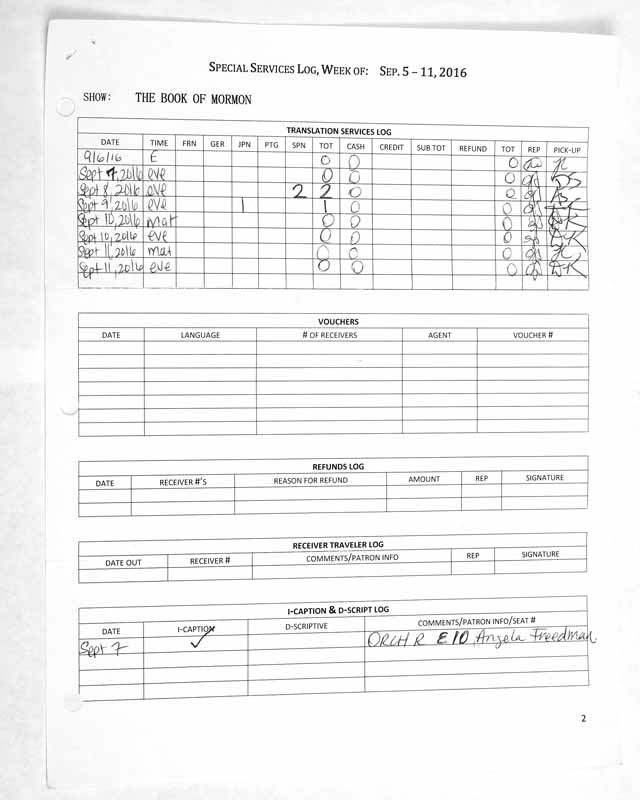 SPECIAL SERVICES LOG, WEEK OF: SEP. 5 – 11, 2016
SHOW: THE BOOK OF MORMON
TRANSLATION SERVICES LOG
DATE TIME FRN GER JPN PTG SPN TOT CASH CREDIT SUB TOT REFUND TOT REP PICK-UP
9/6/16 E 0 0 0
Sept 7, 2016 eve 0 0 0 DS
Sept 8, 2016 eve 2 2 0 0
Sept 9, 2016 eve 1 1 0 0
Sept 10, 2016 mat 0 0 0 DK
Sept 10, 2016 eve 0 0 0 DK
Sept 11, 2016 mat 0 0 0
Sept 11, 2016 eve 0 0 0 DK
VOUCHERS
DATE LANGUAGE # OF RECEIVERS AGENT VOUCHER #
REFUNDS LOG
DATE RECEIVER #'S REASON FOR REFUND AMOUNT REP SIGNATURE
RECEIVER TRAVELER LOG
DATE OUT RECEIVER # COMMENTS/PATRON INFO REP SIGNATURE
I-CAPTION & D-SCRIPT LOG
DATE I-CAPTION D-SCRIPTIVE COMMENTS/PATRON INFO/SEAT #
Sept 7 ✓ ORCH R E10 Angela Freedman
2